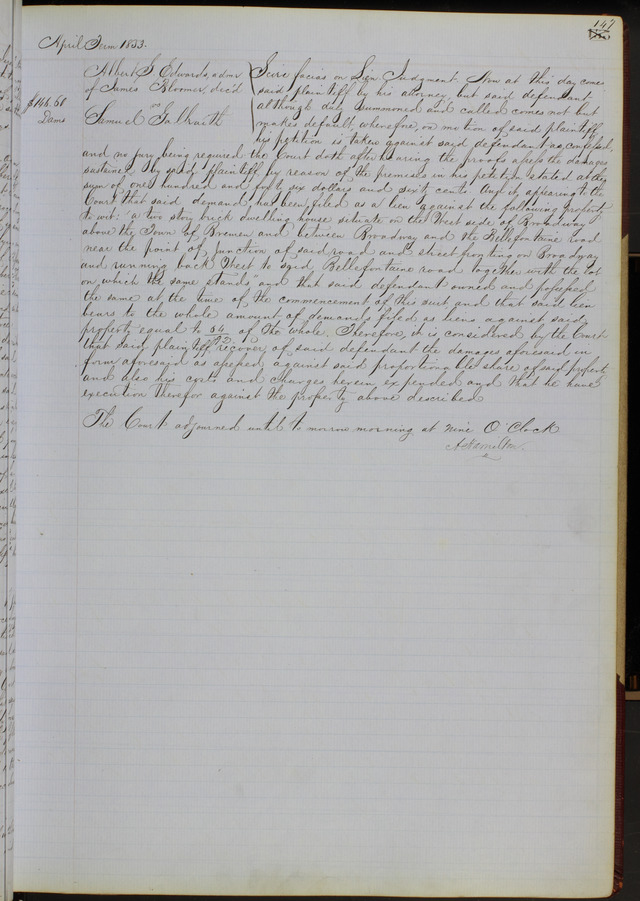 147
April Term 1853.
Albert G Edwards, admr
of James Bloomer, dec'd
vs
Samuel Galbraith
$146.60
Dams
Scire facias on Lien Judgment. Now at this day comes
said plaintiff by his attorney, but said defendant
although duly summoned and called comes not but
makes default, wherefore, on motion of said plaintiff
his petition is taken against said defendant as confessed,
and no jury being required the Court doth after hearing the proofs assess the damages
sustained by said plaintiff by reason of the premises in his petition stated at the
sum of one hundred and forty six dollars and sixty cents And it appearing to the
Court that said demand has been filed as a lien against the following property
to wit: a two story brick dwelling house situate on the West side of Broadway
above the Town of Bremen and between Broadway and the Bellefontaine Road
near the point of junction of said road and street fronting on Broadway
and running back West to said Bellefontaine road together with the lot
on which the same stands, and that said defendant owned and possessed
the same at the time of the commencement of this suit and that said lien
bears to the whole amount of demands filed as liens against said
property equal to of the whole. Therefore, it is considered by the Court
that said plaintiff recover of said defendant the damages aforesaid in
form aforesaid as assessed against said proportionable share of said property
and also his costs and charges herein expended and that he have
execution therefor against the property above described
The Court adjourned until to morrow morning at Nine O Clock
A Hamilton.